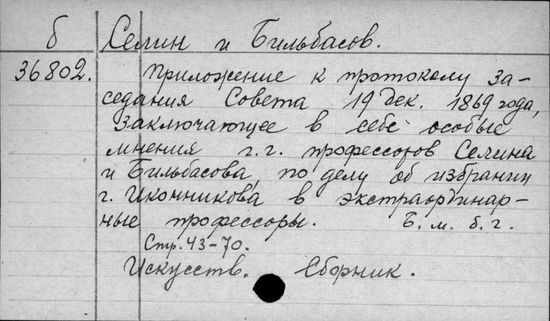 б Селин и Бильбасов.
36802. Приложение к протоколу за-
седания Совета 19 дек. 1869 года,
заключающее в себе особые
мнения г.г. профессоров Селина
и Бильбасова, по делу об избрании
г. Иконникова в экстраординар-
ные профессоры. Б. м. б. г.
Стр. 43-70.
Искусств. Сборник.